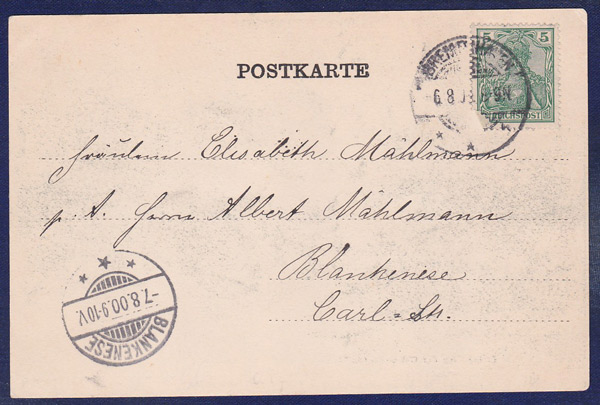 POSTKARTE
5
REICHSPOST
6 8 0 8-9N.
Fräulein Elisabeth Mählmann
p. A. Herrn Albert Mählmann
Blankenese
Carl=Str.
-7.8.00.9-10V.
BLANKENESE